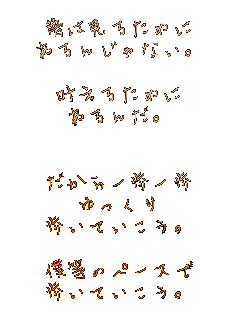 夢は見るために
あるんじゃない。
叶えるために
あるんだ。
だから一歩一歩
ゆっくり
歩いていこう。
僕達のペースで
歩いていこう。